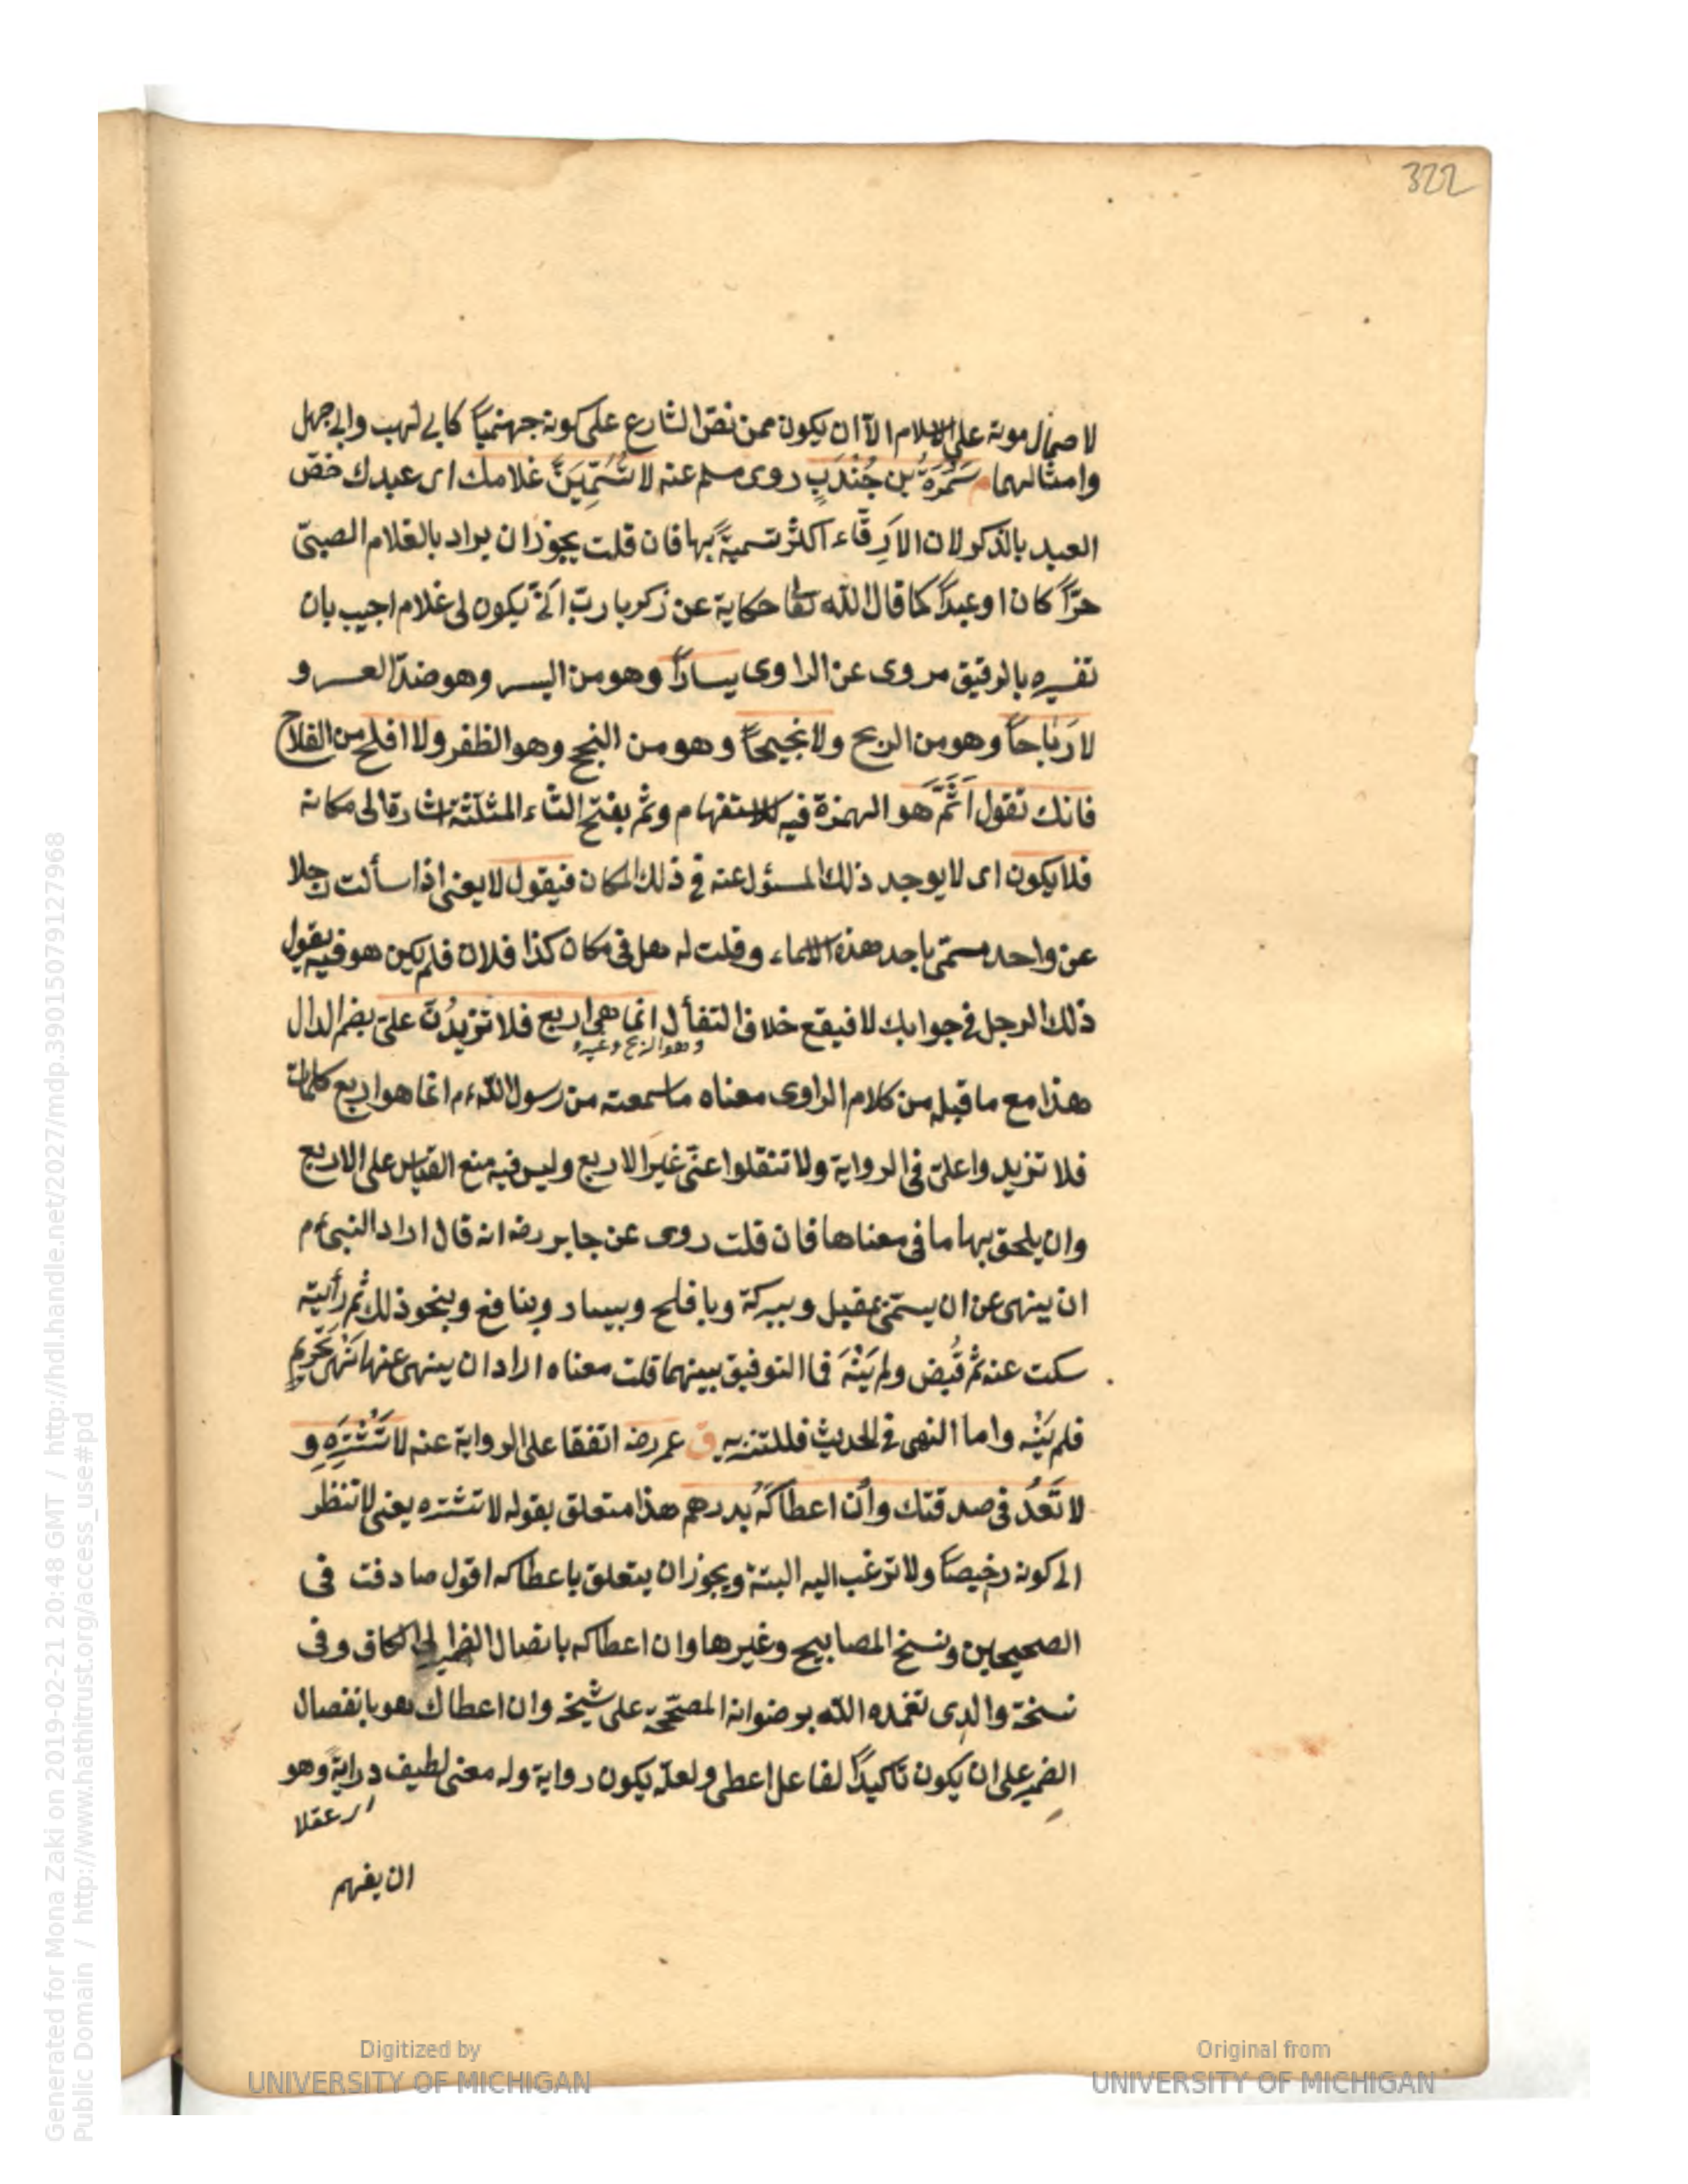 322
لاحتمال موته على الاسلام الا ان يكون ممن نص الشارع على كونه جهنميا كابى لهب وابى جهل
وامثالهما م سَمُرَةُ بن جُنْدَبٍ روى مسلم عنه لا تُسَمِّيَنَّ غلامك اى عبدك خصّ
العبد بالذكر لان الاَرِقّاء اكثر تسميةً بها فان قلت يجوز ان يراد بالغلام الصبىّ
حرّاً كان او عبداً كما قال الله تعا حكاية عن زكريا ربّ انّى يكون لى غلام اجيب بان
تفسيره بالرقيق مروى عن الراوى يساراً وهو من اليسر وهو ضدّ العسر و
لا رَبَاحاً وهو من الربح ولا نجيحاً وهو من النجح وهو الظفر ولا افلح من الفلاح
فانك تقول اَثَمَّ هو الهمزة فيه للاستفهام وثم بفتح الثاء المثلّثة اشارة الى مكانه
فلا يكون اى لا يوجد ذلك المسئول عنه فى ذلك المكان فيقول لا يعنى اذا سألت رجلا
عن واحد مسمّى باحد هذه الاسماء وقلت له هل فى مكان كذا فلان فلم يكن هو فيه يقول
ذلك الرجل فى جوابك لا فيقع خلاف التفأل انما هى اربع فلا تزيدُنّ علىّ بضم الدال
وهو الربح وغيره
هذا مع ما قبله من كلام الراوى معناه ما سمعته من رسول الله ءم انما هو اربع كلمات
فلا تزيدوا علىّ فى الرواية ولا تنقلوا عنّى غيرَ الاربع وليس فيه منع القياس على الاربع
وان يلحق بها ما فى معناها فان قلت روى عن جابر رضه انه قال اراد النبى ءم
ان ينهى عن ان يسمّى بمقبل وببركة وبافلح وبيسار وبنافع وبنحو ذلك ثم رأيته
سكت عنه ثم قُبض ولم يَنْهَ فما التوفيق بينهما قلت معناه اراد ان ينهى عنها نَهْىَ تحريمٍ
فلم يَنْهَ واما النهى فى الحديث فللتنزيه ق عمر رضه اتفقا على الرواية عنه لا تَشْتَرِهِ و
لا تَعُدْ فى صدقتك وان اعطاكَهُ بدرهم هذا متعلق بقوله لا تشتره يعنى لا تنظر
الى كونه رخيصاً ولا ترغب اليه البتة ويجوز ان يتعلق باعطاكه اقول صادفت فى
الصحيحين ونسخ المصابيح وغيرها وان اعطاكه باتصال الضمير الى الكاف وفى
نسخة والدى تغمده الله برضوانه المصحّحة على شيخه وان اعطاك هو بانفصال
الضمير على ان يكون تأكيداً لفاعل اعطى ولعلّه يكون رواية وله معنى لطيف درايةً وهو
اى عقلا
ان يفهم
Generated for Mona Zaki on 2019-02-21 20:48 GMT / http://hdl.handle.net/2027/mdp.39015079127968
Public Domain / http://www.hathitrust.org/access_use#pd
Digitized by
UNIVERSITY OF MICHIGAN
Original from
UNIVERSITY OF MICHIGAN